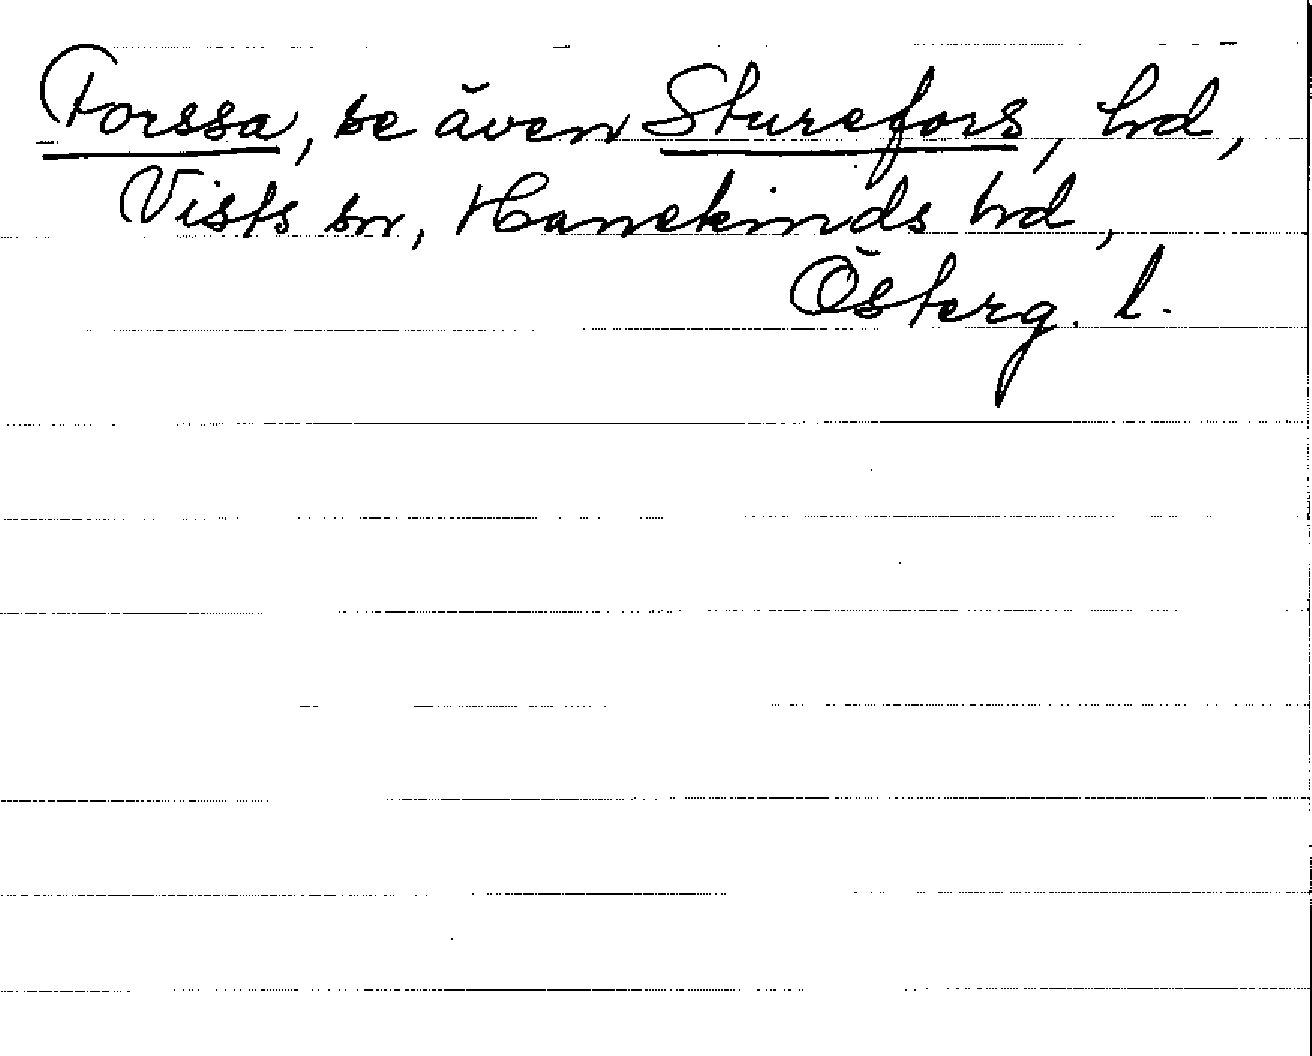 Forssa, se även Sturefors, hd,
Vists sn, Hanekinds hd,
Österg. l.